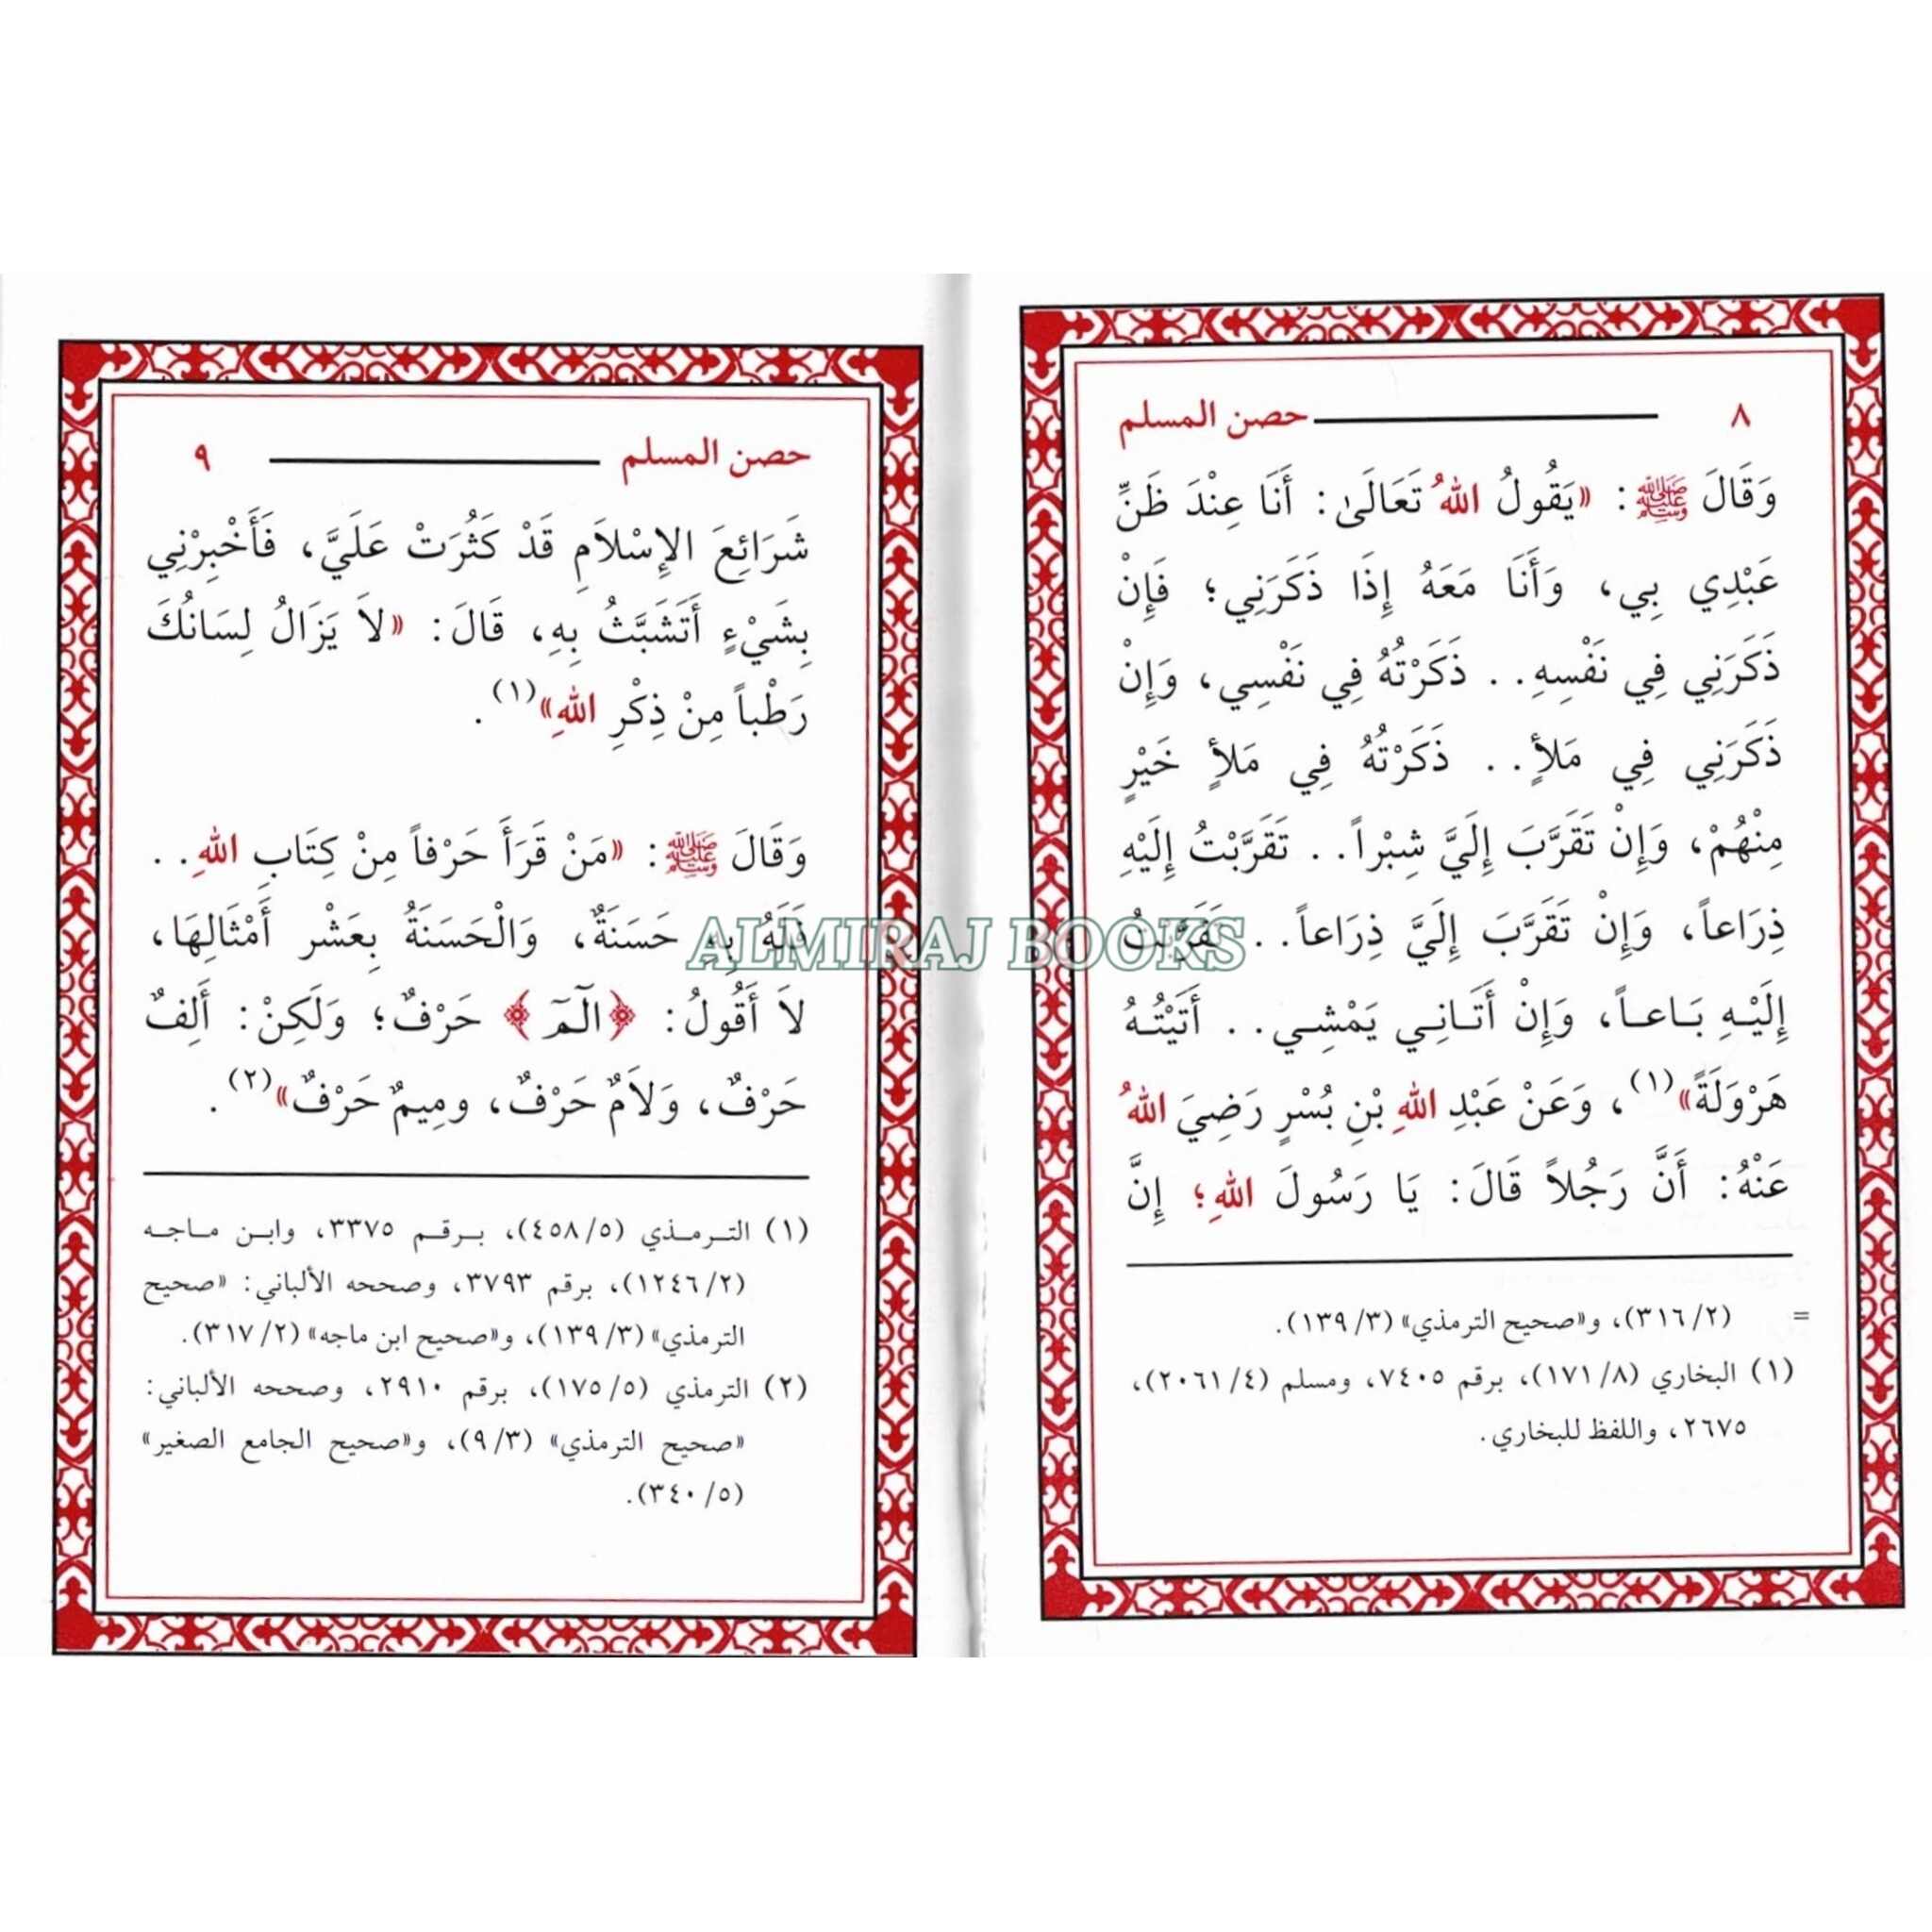 ٨ حصن المسلم
وَقَالَ ﷺ: «يَقُولُ اللهُ تَعَالَىٰ: أَنَا عِنْدَ ظَنِّ
عَبْدِي بِي، وَأَنَا مَعَهُ إِذَا ذَكَرَنِي؛ فَإِنْ
ذَكَرَنِي فِي نَفْسِهِ.. ذَكَرْتُهُ فِي نَفْسِي، وَإِنْ
ذَكَرَنِي فِي مَلأٍ.. ذَكَرْتُهُ فِي مَلأٍ خَيْرٍ
مِنْهُمْ، وَإِنْ تَقَرَّبَ إِلَيَّ شِبْراً.. تَقَرَّبْتُ إِلَيْهِ
ذِرَاعاً، وَإِنْ تَقَرَّبَ إِلَيَّ ذِرَاعاً.. تَقَرَّبْتُ
إِلَيْهِ بَاعاً، وَإِنْ أَتَانِي يَمْشِي.. أَتَيْتُهُ
هَرْوَلَةً»(١)، وَعَنْ عَبْدِ اللهِ بْنِ بُسْرٍ رَضِيَ اللهُ
عَنْهُ: أَنَّ رَجُلاً قَالَ: يَا رَسُولَ اللهِ؛ إِنَّ
= (٣١٦/٢)، و«صحيح الترمذي» (١٣٩/٣).
(١) البخاري (١٧١/٨)، برقم ٧٤٠٥، ومسلم (٢٠٦١/٤)،
٢٦٧٥، واللفظ للبخاري.
حصن المسلم ٩
شَرَائِعَ الإِسْلاَمِ قَدْ كَثُرَتْ عَلَيَّ، فَأَخْبِرْنِي
بِشَيْءٍ أَتَشَبَّثُ بِهِ، قَالَ: «لاَ يَزَالُ لِسَانُكَ
رَطْباً مِنْ ذِكْرِ اللهِ»(١).
وَقَالَ ﷺ: «مَنْ قَرَأَ حَرْفاً مِنْ كِتَابِ اللهِ..
فَلَهُ بِهِ حَسَنَةٌ، وَالْحَسَنَةُ بِعَشْرِ أَمْثَالِهَا،
لاَ أَقُولُ: ﴿الٓمٓ﴾ حَرْفٌ؛ وَلَكِنْ: أَلِفٌ
حَرْفٌ، وَلاَمٌ حَرْفٌ، ومِيمٌ حَرْفٌ»(٢).
(١) الترمذي (٤٥٨/٥)، برقم ٣٣٧٥، وابن ماجه
(١٢٤٦/٢)، برقم ٣٧٩٣، وصححه الألباني: «صحيح
الترمذي» (١٣٩/٣)، و«صحيح ابن ماجه» (٣١٧/٢).
(٢) الترمذي (١٧٥/٥)، برقم ٢٩١٠، وصححه الألباني:
«صحيح الترمذي» (٩/٣)، و«صحيح الجامع الصغير»
(٣٤٠/٥).
ALMIRAJ BOOKS